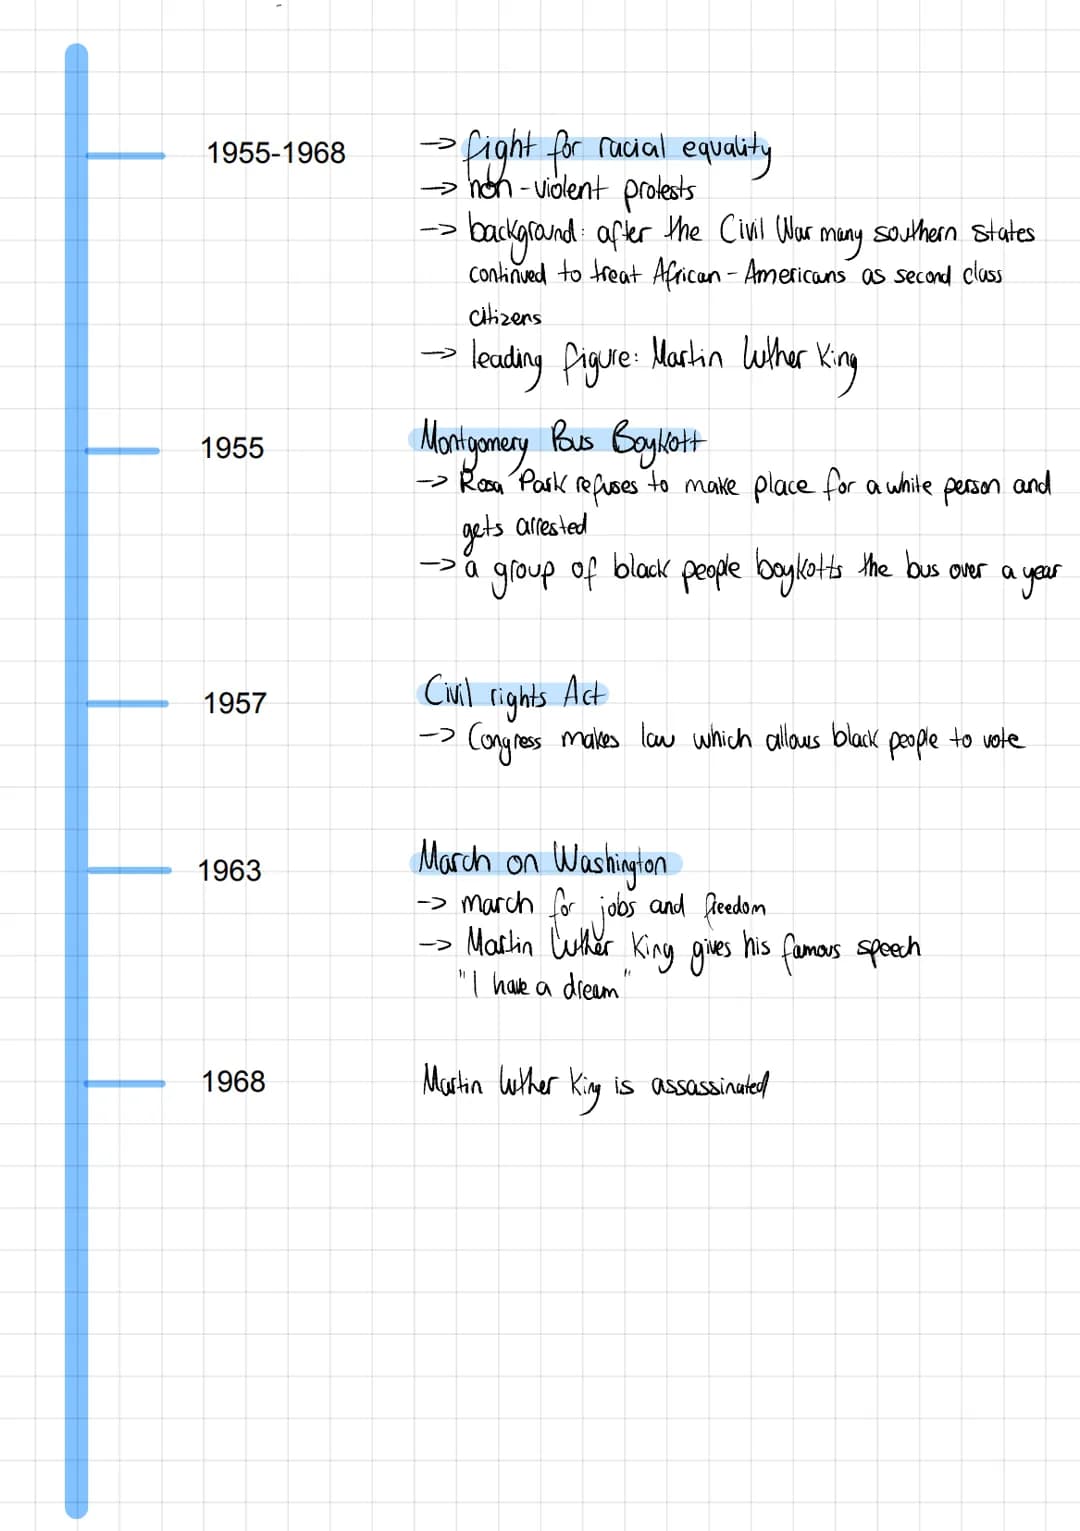 1955-1968 -> fight for racial equality
-> non-violent protests
-> background: after the Civil War many southern states
continued to treat African-Americans as second class
citizens
-> leading figure: Martin Luther King
1955 Montgomery Bus Boykott
-> Rosa Park refuses to make place for a white person and
gets arrested
-> a group of black people boykotts the bus over a year
1957 Civil rights Act
-> Congress makes law which allows black people to vote
1963 March on Washington
-> march for jobs and freedom
-> Martin Luther King gives his famous speech
"I have a dream"
1968 Martin Luther King is assassinated